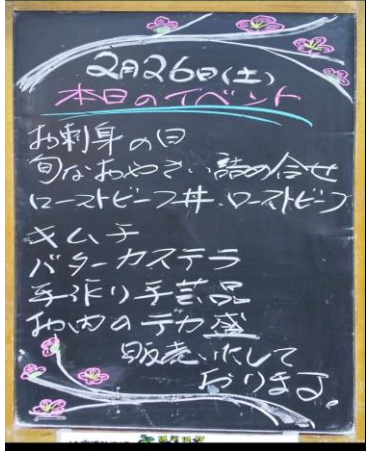 2月26日(土)
本日のイベント
お刺身の日
旬なおやさい詰め合せ
ローストビーフ丼・ローストビーフ
キムチ
バターカステラ
手作り手芸品
お肉のデカ盛
販売いたして
おります。